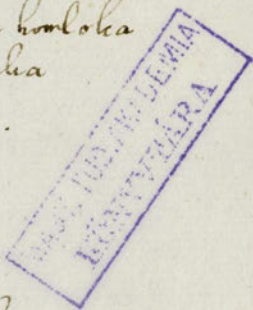 homloka
MAGY. TUD. AKADEMIA
KÖNYVTÁRA